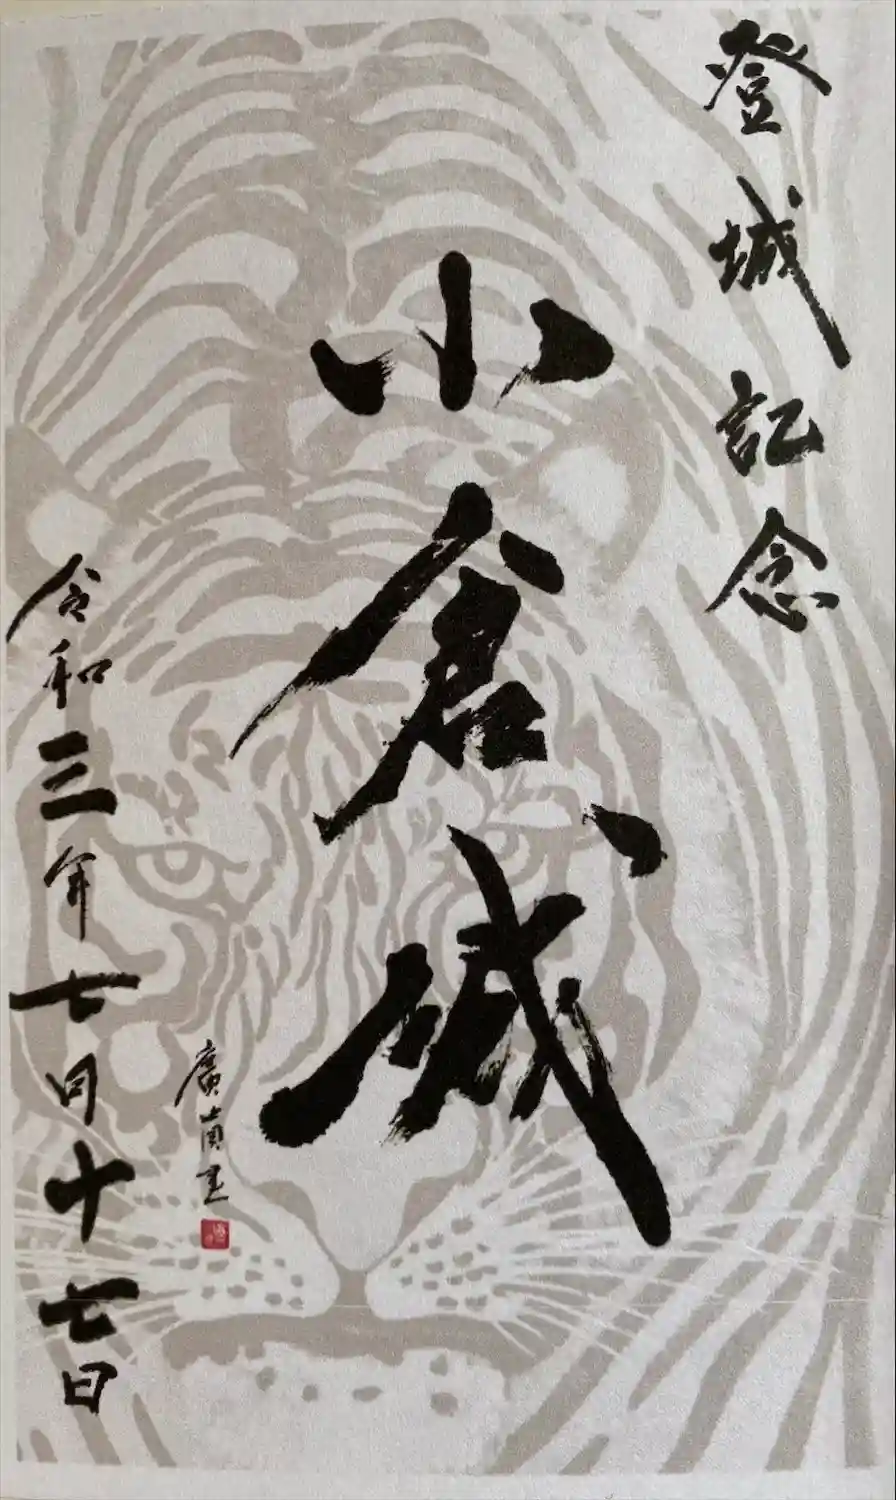 登城記念
小倉城
令和三年七月十七日
廣貞書